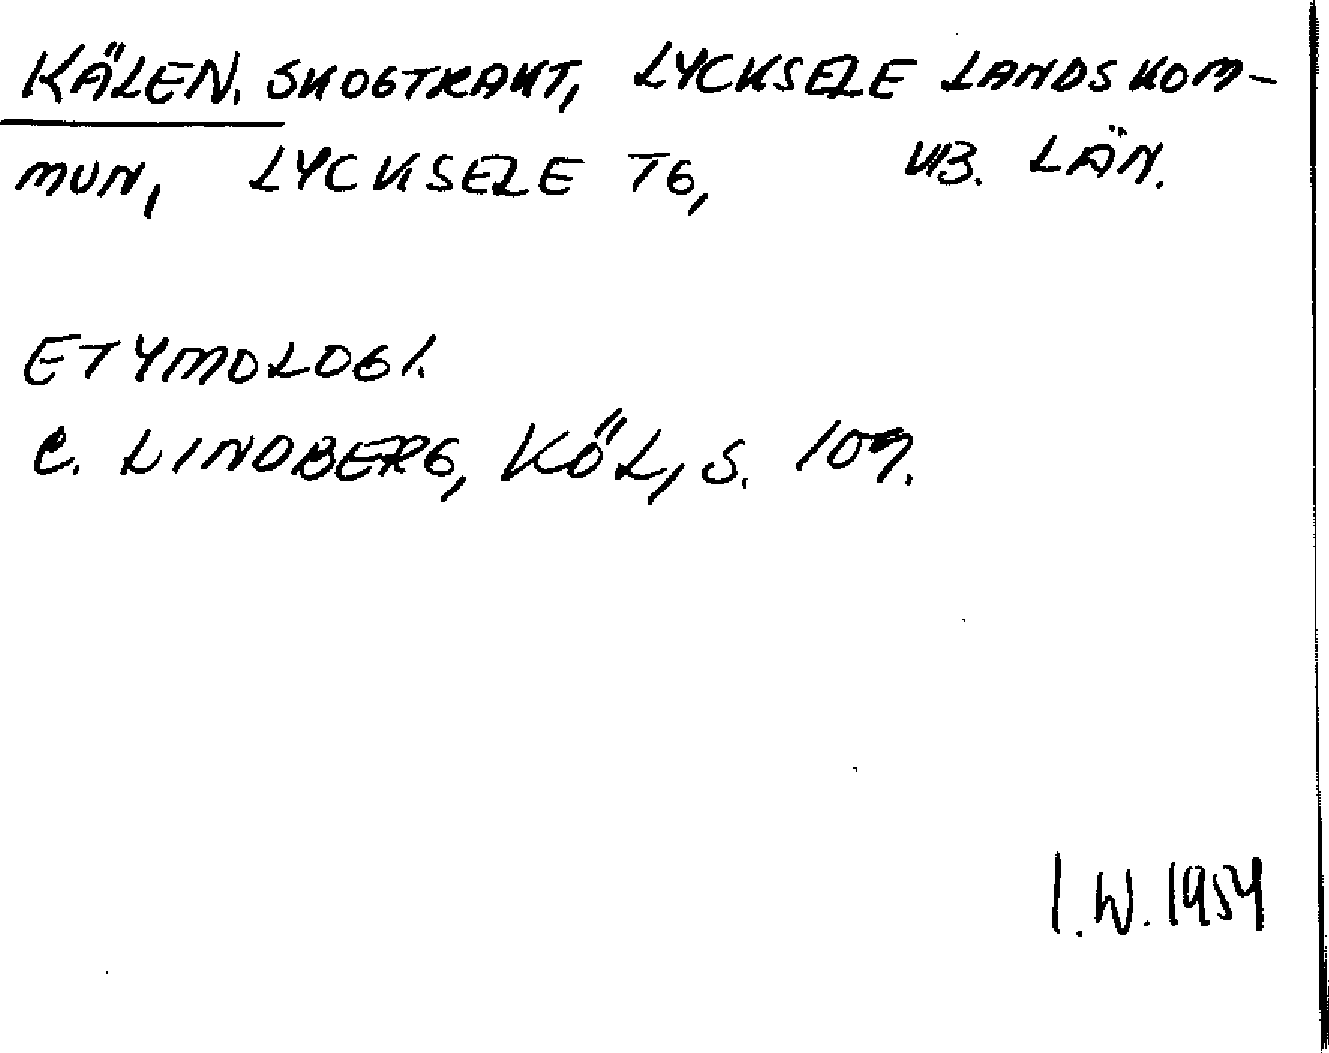 KÄLEN, SKOGTRAKT, LYCKSELE LANDSKOM-
MUN, LYCKSELE TG, VB. LÄN.
ETYMOLOGI.
C. LINDBERG, KÖL, S. 109.
I.W. 1954